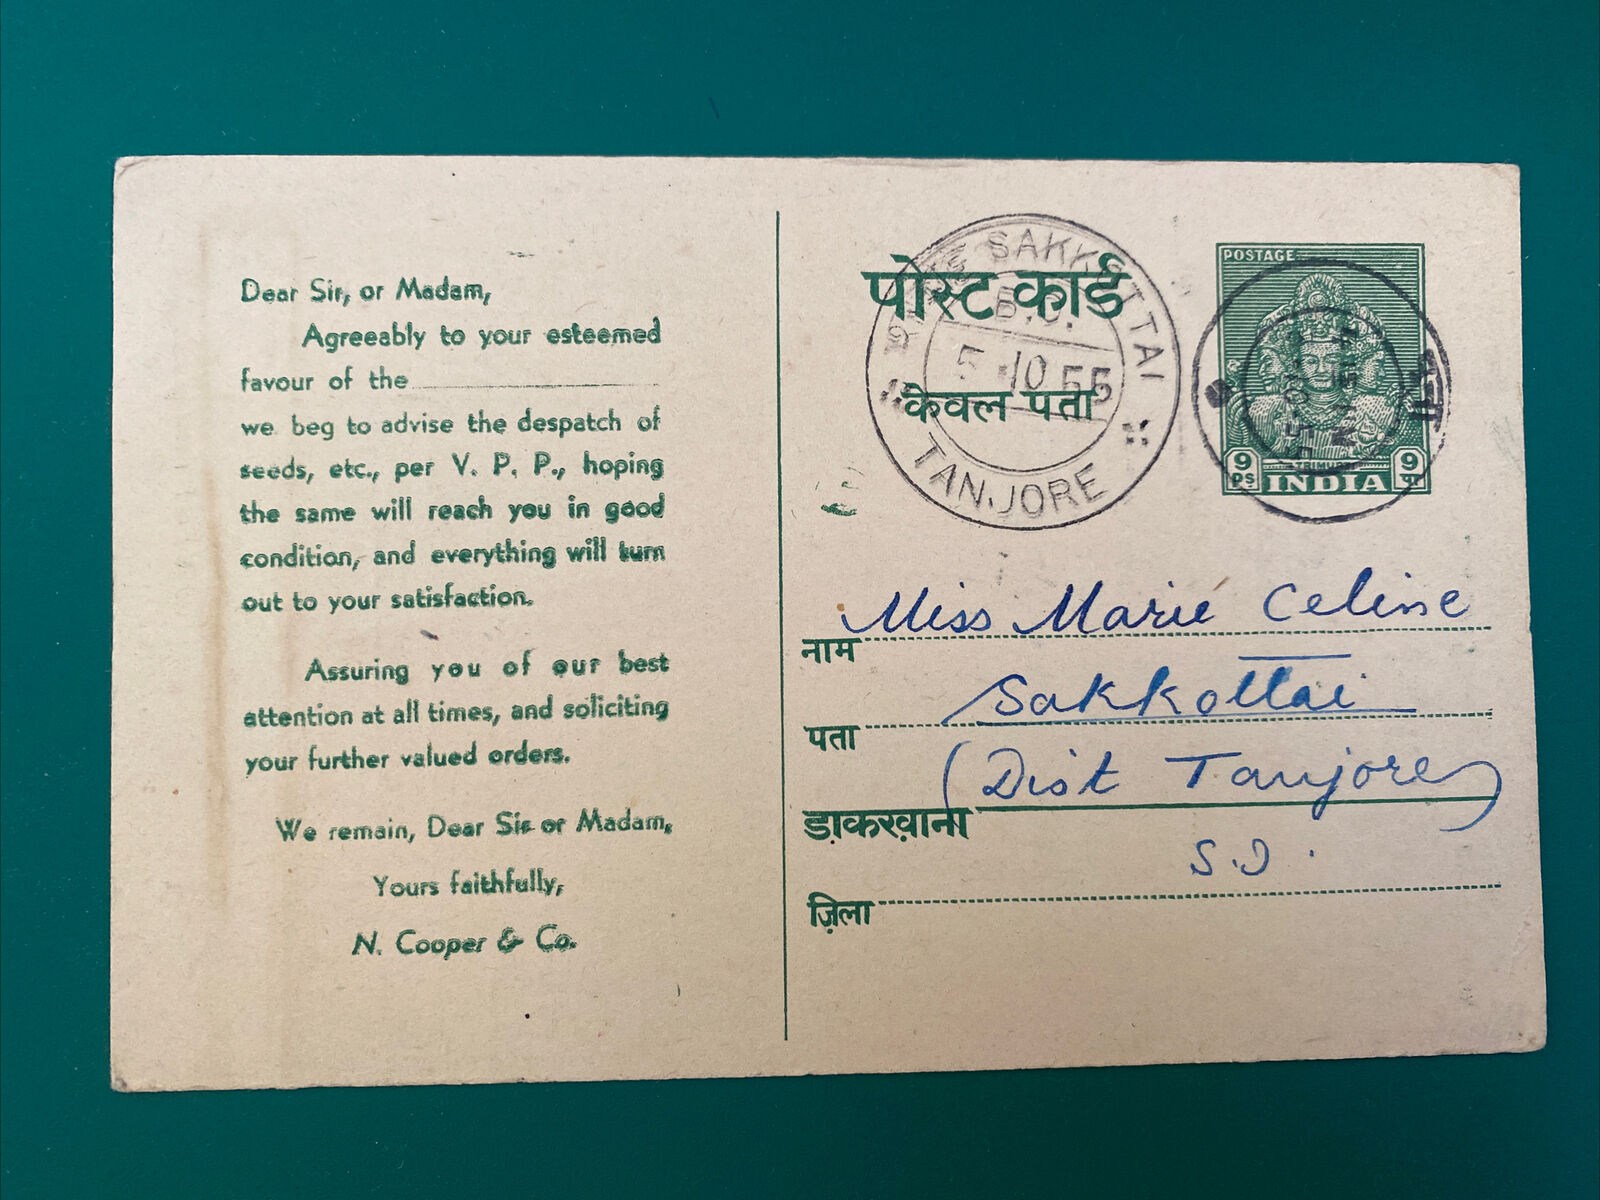 Dear Sir, or Madam,
Agreeably to your esteemed
favour of the
we beg to advise the despatch of
seeds, etc., per V. P. P., hoping
the same will reach you in good
condition, and everything will turn
out to your satisfaction.
Assuring you of our best
attention at all times, and soliciting
your further valued orders.
We remain, Dear Sir or Madam,
Yours faithfully,
N. Cooper & Co.
पोस्ट कार्ड
केवल पता
SAKKOTTAI
B.O.
5 10 55
TANJORE
POSTAGE
TRIMURTI
9 PS INDIA 9 पा
Miss Marie Celine
नाम
Sakkottai
पता
(Dist Tanjore)
डाकख़ाना
S.I.
ज़िला